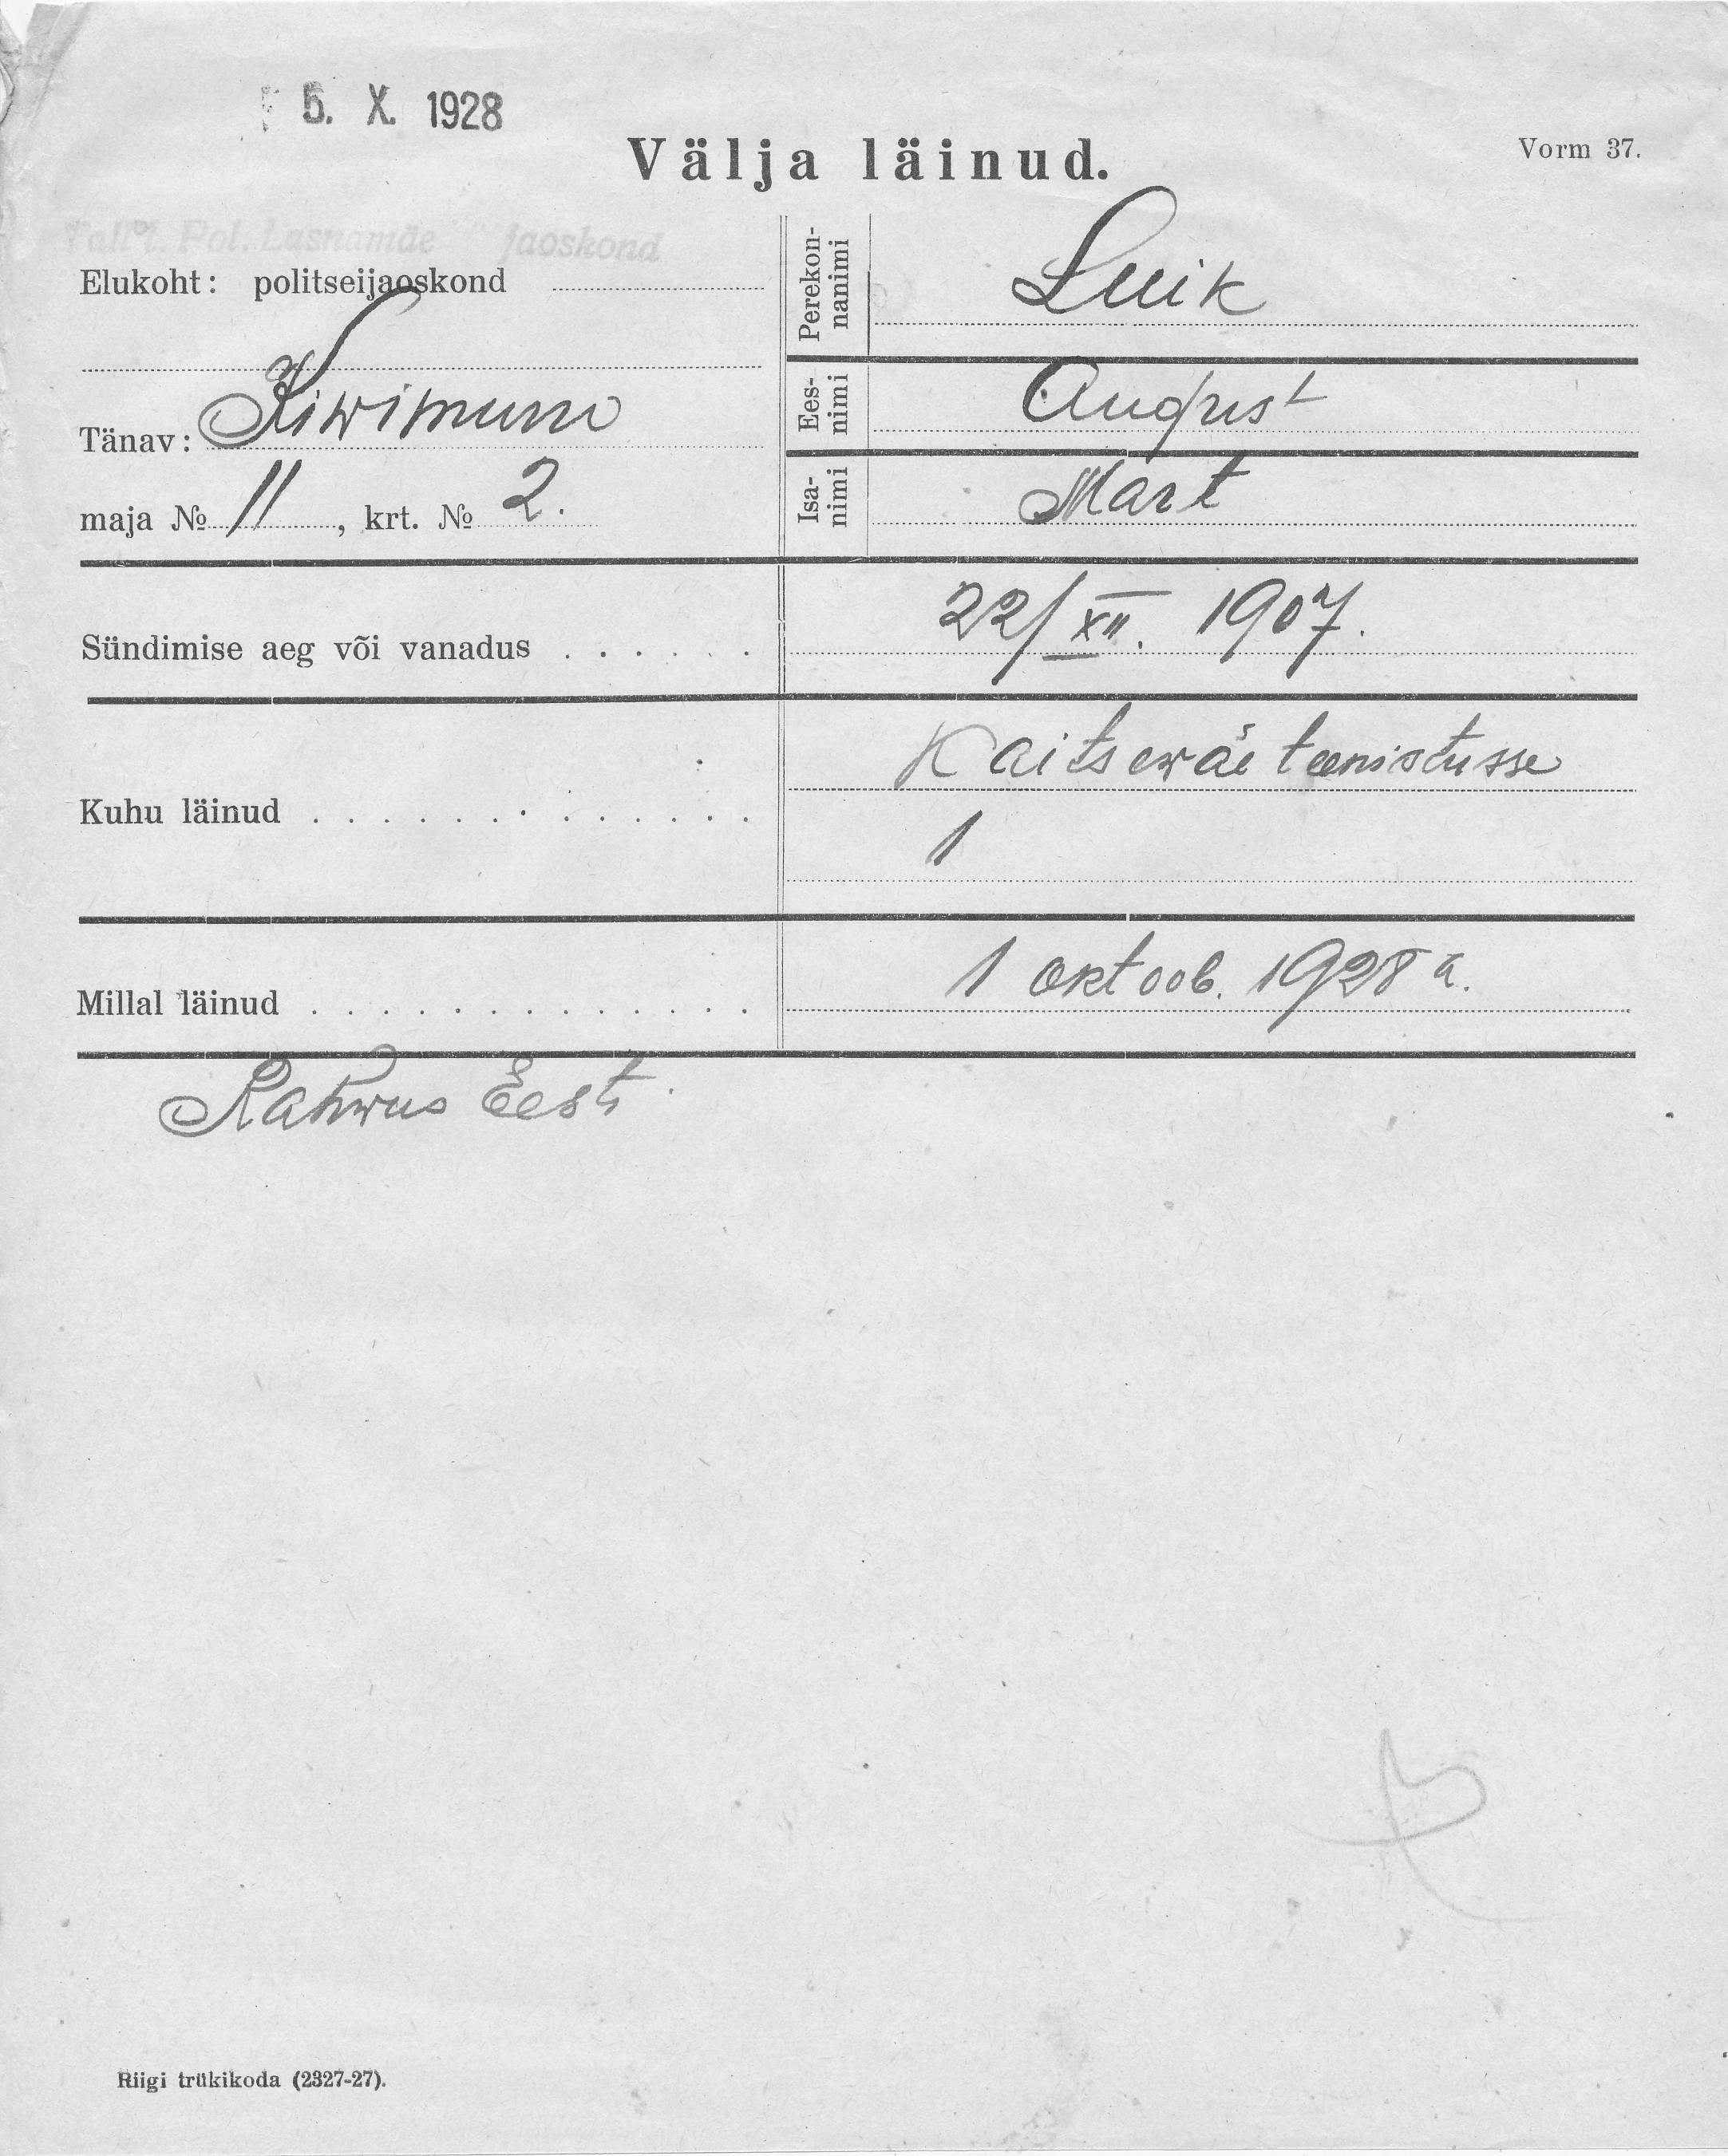 5. X. 1928
Välja läinud.
Vorm 37.
Tall. Pol. Lasnamäe jaoskond
Elukoht: politseijaoskond
Tänav: Kiwimurru
maja № 11, krt. № 2.
Perekonnanimi Luik
Eesnimi August
Isanimi Mart
Sündimise aeg või vanadus . . . . . . 22/XII. 1907.
Kuhu läinud . . . . . . . . . . . . . Kaitsewäe teenistusse
1
Millal läinud . . . . . . . . . . . . . 1 oktoob. 1928 a.
Rahwus Eesti
Riigi trükikoda (2327-27).